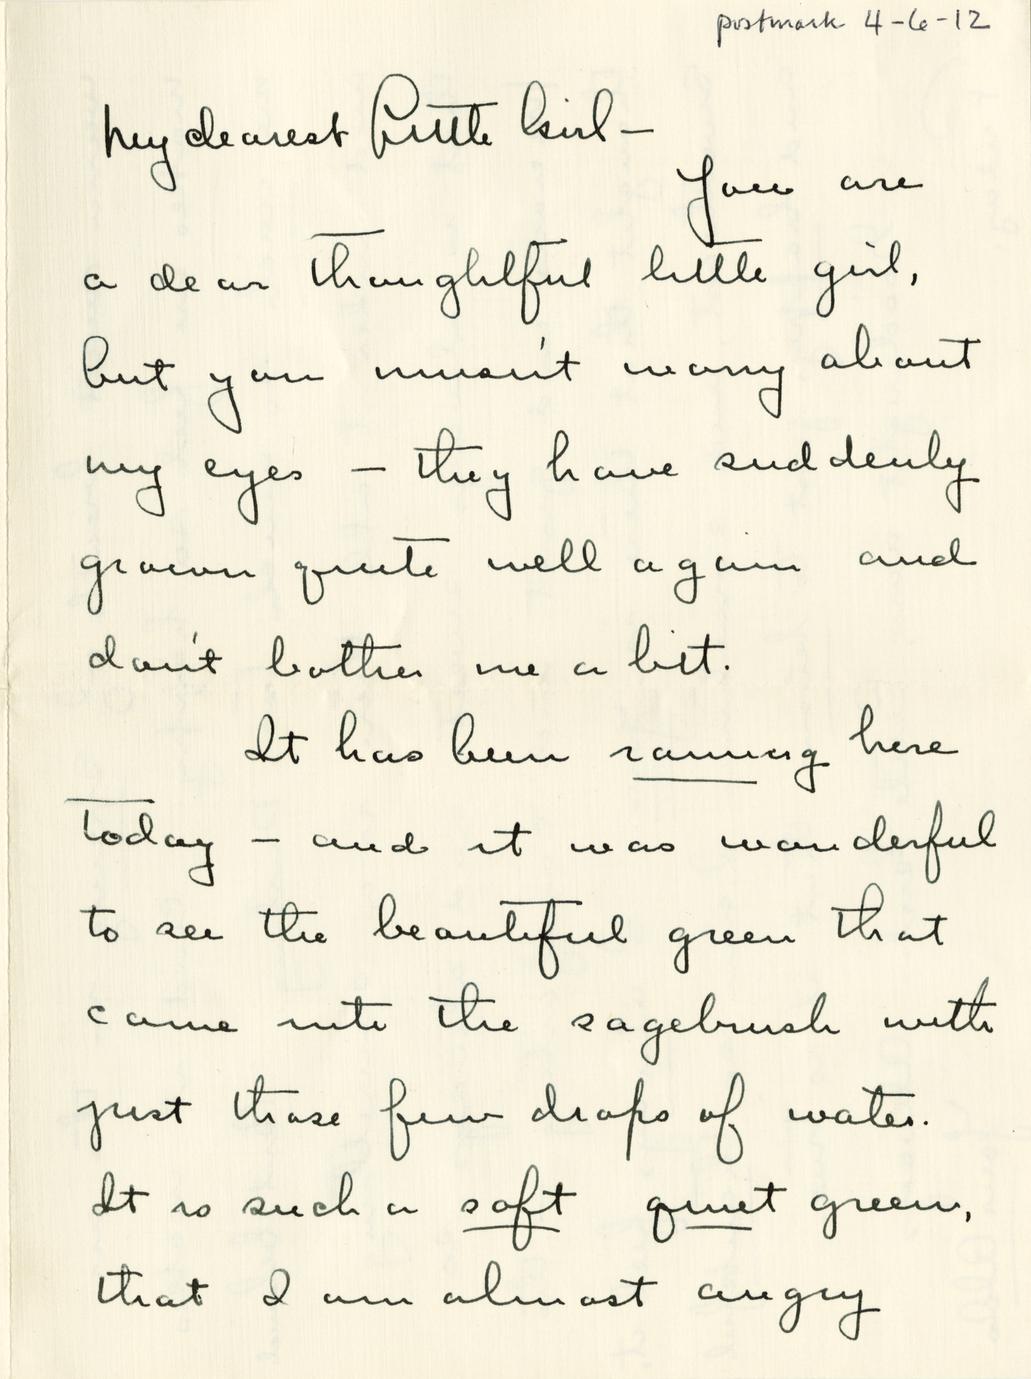 postmark 4-6-12
My dearest Little Girl —
You are
a dear thoughtful little girl,
but you musn't worry about
my eyes — they have suddenly
grown quite well again and
don't bother me a bit.
It has been raining here
today — and it was wonderful
to see the beautiful green that
came into the sagebrush with
just those few drops of water.
It is such a soft quiet green,
that I am almost angry